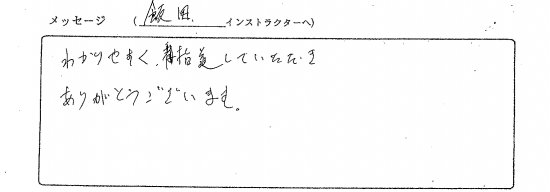 メッセージ (飯田 インストラクターへ)
わかりやすく、指導していただき
ありがとうございます。